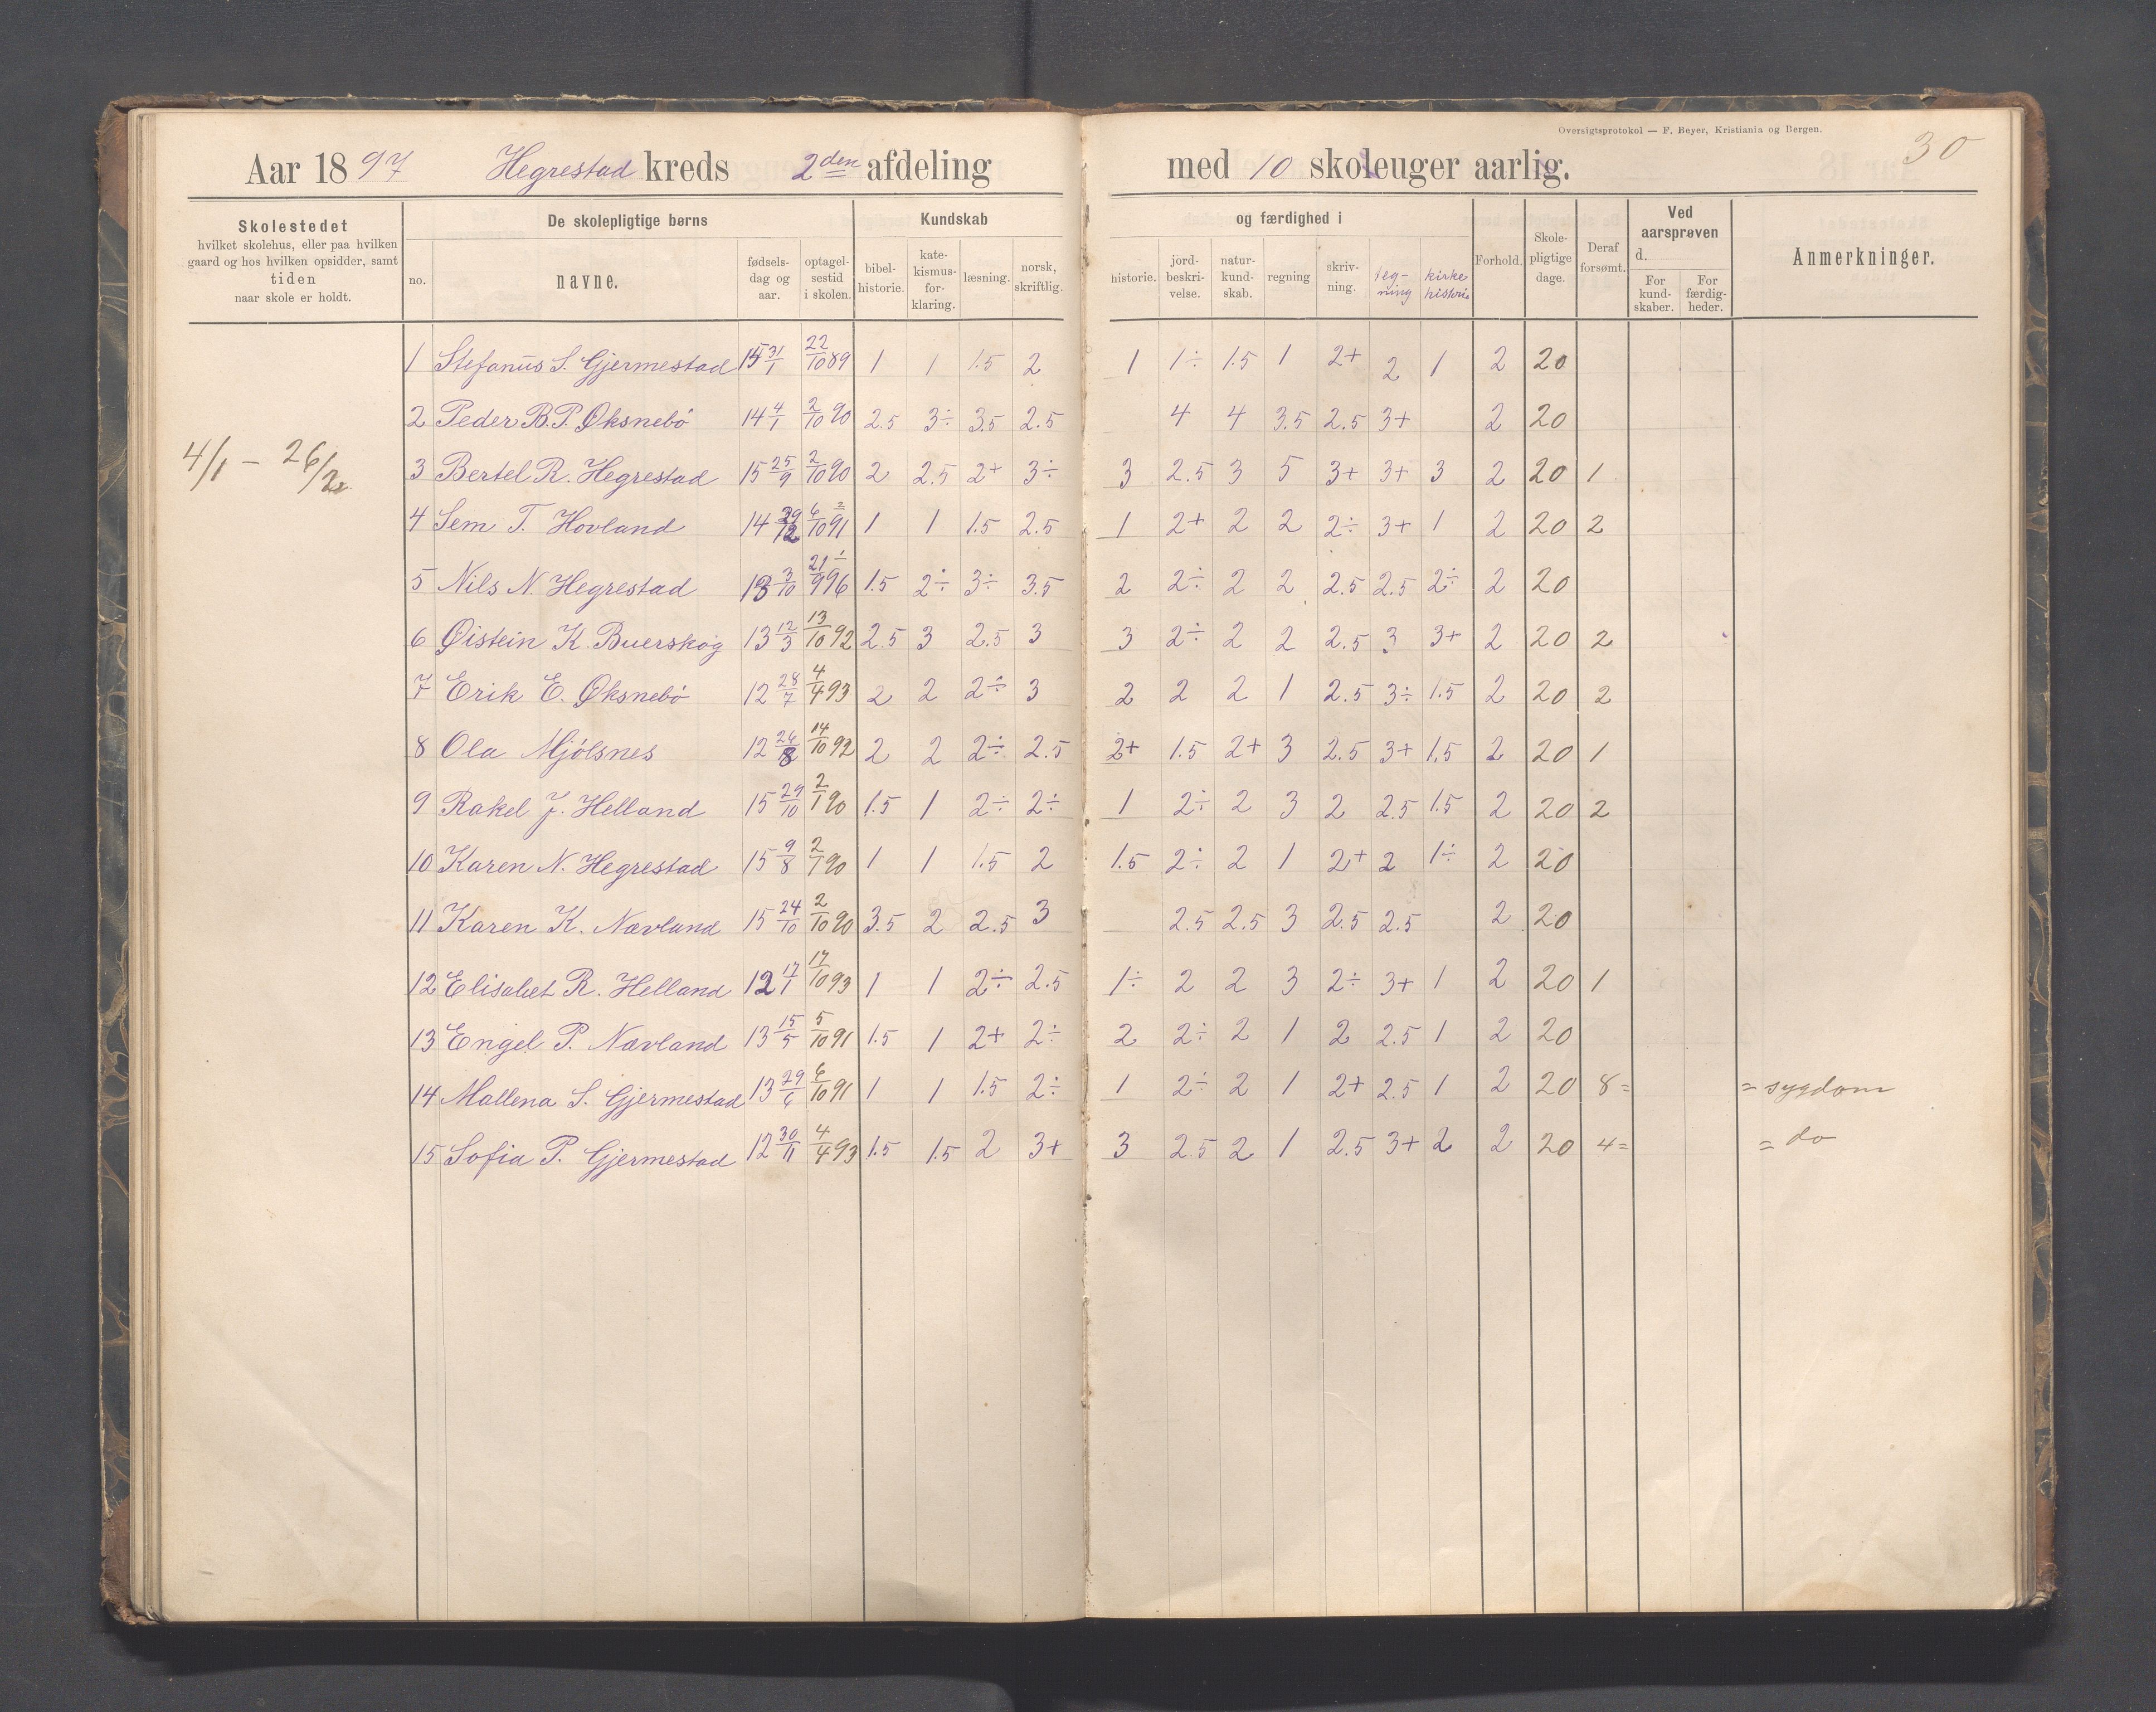 Oversigtsprotokol — F. Beyer, Kristiania og Bergen.
30
Aar 1897 Hegrestad kreds 2den afdeling med 10 skoleuger aarlig.
Skolestedet hvilket skolehus, eller paa hvilken gaard og hos hvilken opsidder, samt tiden naar skole er holdt.
De skolepligtige børns
no. navne. fødselsdag og aar. optagelsestid i skolen.
Kundskab og færdighed i
bibelhistorie. katekismusforklaring. læsning. norsk, skriftlig. historie. jordbeskrivelse. naturkundskab. regning skrivning. tegning kirkehistorie
Forhold. Skolepligtige dage. Deraf forsømt.
Ved aarsprøven d.
For kundskaber. For færdigheder.
Anmerkninger.
4/1 – 26/2
1 Stefanus S. Gjermestad 15 31/1 22/10 89 1 1 1.5 2 1 1÷ 1.5 1 2+ 2 1 2 20
2 Peder B.P. Øksnebö 14 4/1 2/10 90 2.5 3÷ 3.5 2.5 4 4 3.5 2.5 3+ 2 20
3 Bertel R. Hegrestad 15 25/9 2/10 90 2 2.5 2+ 3÷ 3 2.5 3 5 3+ 3+ 3 2 20 1
4 Sem T. Hovland 14 29/12 6/10 91 1 1 1.5 2.5 1 2+ 2 2 2÷ 3+ 1 2 20 2
5 Nils N. Hegrestad 13 3/10 21/9 96 1.5 2÷ 3÷ 3.5 2 2÷ 2 2 2.5 2.5 2÷ 2 20
6 Øistein K. Buerskog 13 12/3 13/10 92 2.5 3 2.5 3 3 2÷ 2 2 2.5 3 3+ 2 20 2
7 Erik E. Øksnebö 12 28/7 4/4 93 2 2 2÷ 3 2 2 2 1 2.5 3÷ 1.5 2 20 2
8 Ola Mjölsnes 12 26/8 14/10 92 2 2 2÷ 2.5 2+ 1.5 2+ 3 2.5 3+ 1.5 2 20 1
9 Rakel J. Helland 15 29/10 2/1 90 1.5 1 2÷ 2÷ 1 2÷ 2 3 2 2.5 1.5 2 20 2
10 Karen N. Hegrestad 15 9/8 2/1 90 1 1 1.5 2 1.5 2÷ 2 1 2+ 2 1÷ 2 20
11 Karen K. Nævland 15 24/10 2/10 90 3.5 2 2.5 3 2.5 2.5 3 2.5 2.5 2 20
12 Elisabet R. Helland 12 17/1 17/10 93 1 1 2÷ 2.5 1÷ 2 2 3 2÷ 3+ 1 2 20 1
13 Engel P. Nævland 13 15/5 5/10 91 1.5 1 2+ 2÷ 2 2÷ 2 1 2 2.5 1 2 20
14 Mallena S. Gjermestad 13 29/6 6/10 91 1 1 1.5 2÷ 1 2÷ 2 1 2+ 2.5 1 2 20 8= = sygdom
15 Sofia P. Gjermestad 12 30/11 4/4 93 1.5 1.5 2 3+ 3 2.5 2 1 2.5 3+ 2 2 20 4= = do